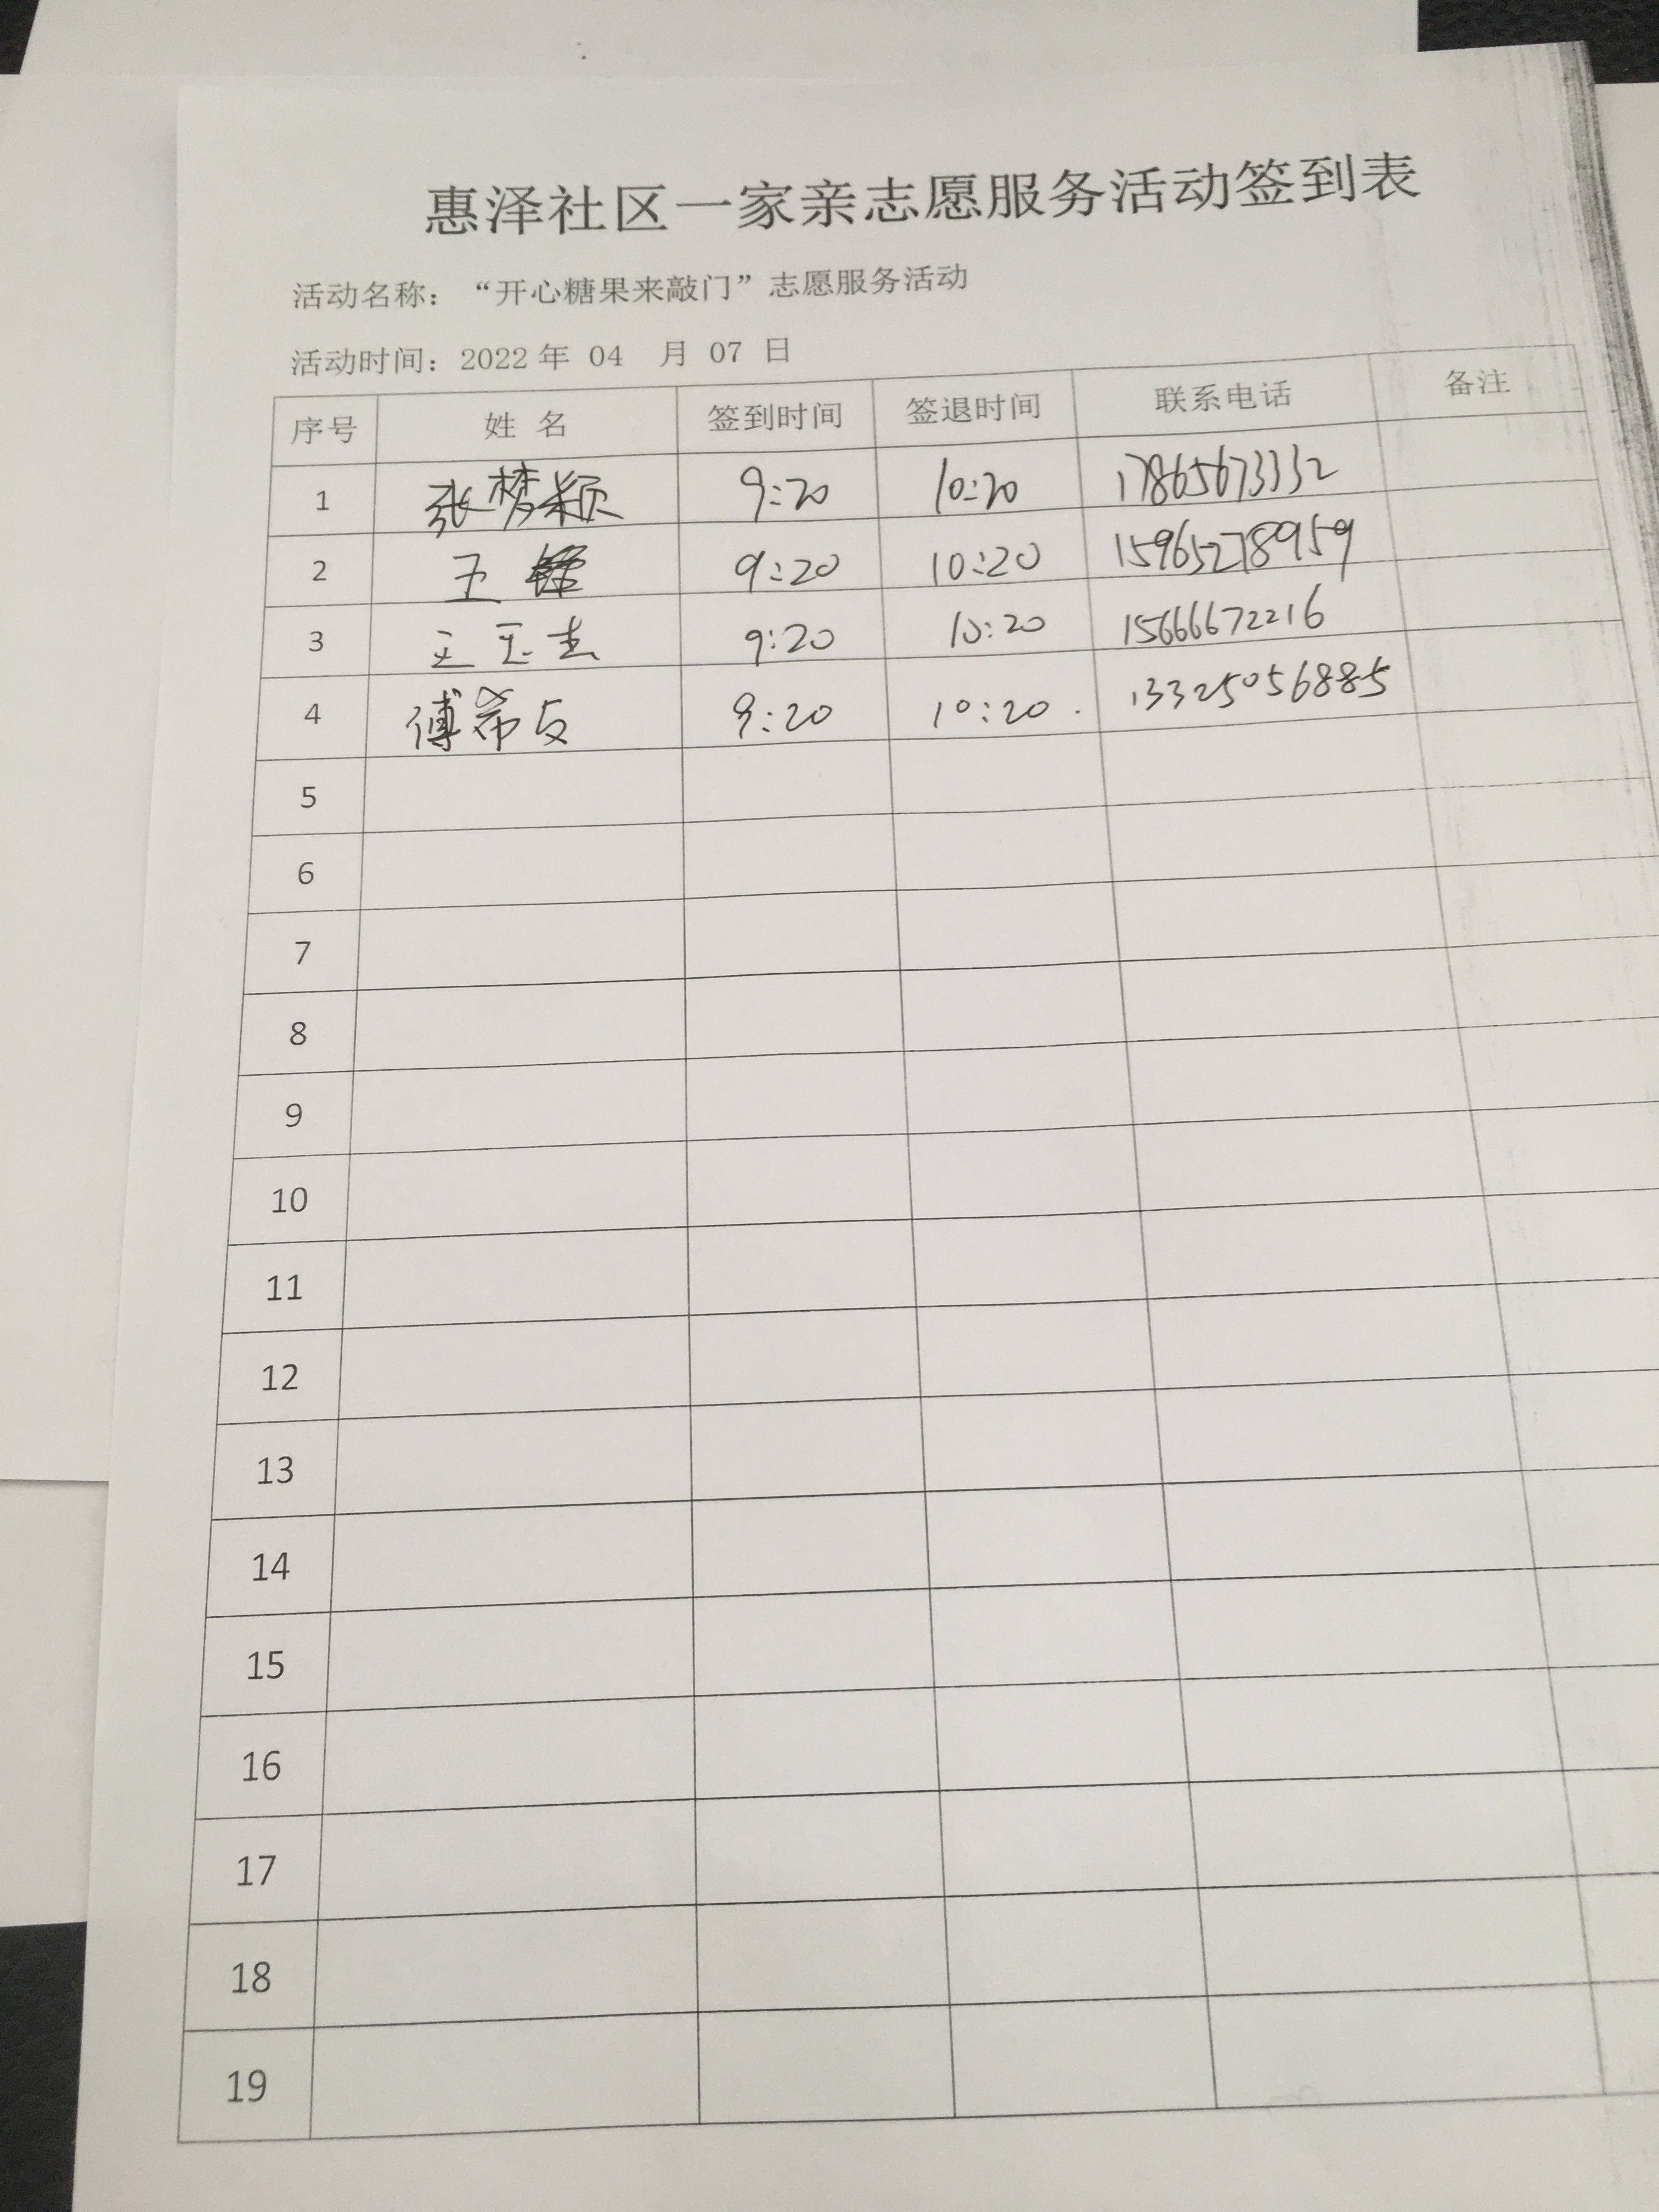 惠泽社区一家亲志愿服务活动签到表
活动名称：“开心糖果来敲门”志愿服务活动
活动时间：2022 年 04 月 07 日
序号 姓 名 签到时间 签退时间 联系电话 备注
1 张梦颖 9:20 10:20 17865673332
2 王 9:20 10:20 15965278959
3 王玉 9:20 10:20 15666672216
4 傅希友 9:20 10:20. 13325056885
5
6
7
8
9
10
11
12
13
14
15
16
17
18
19